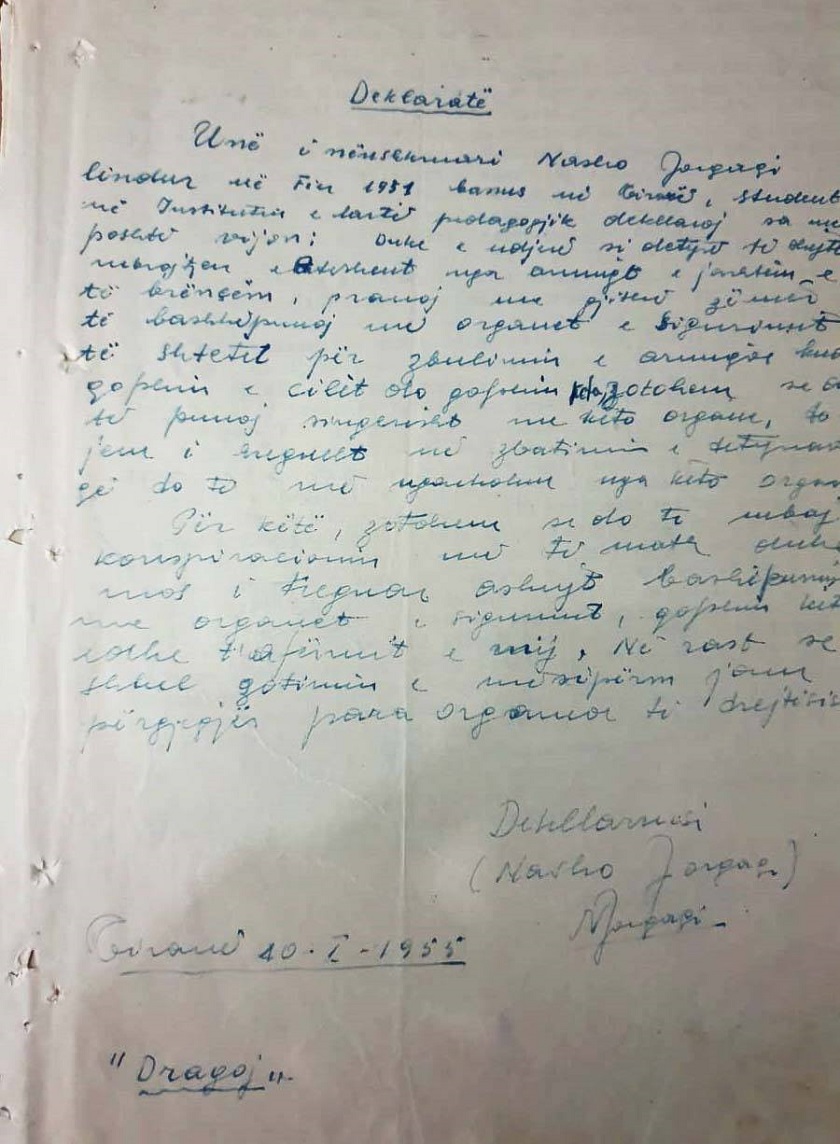 Deklaratë
Unë i nënshkruari Nasho Jorgaqi
lindur në Fier 1931 banus në Tiranë, student
në Institutin e lartë pedagogjik deklaroj sa më
poshtë vijon: Duke e ndjerë si detyrë të
mbrojtjen e Atdheut nga armiqt e jashtëm e
të brëndëm, pranoj me gjithë zëmër
të bashkëpunoj me organet e Sigurimit
të shtetit për zbulimin e armiqve kudo
qofshin e cilët do qofshin zotohem se do
të punoj singerisht me këto organe, do
jem i rregullt në zbatimin e detyrave
që do të më ngarkohen nga këto organ
Për këtë, zotohem se do të mbaj
konspiracionin më të math duke
mos i treguar askujt bashkëpunimin
me organet e sigurimit, qofshin këta
edhe t'afërmit e mij, Në rast se
shkel zotimin e mësipërm jam
përgjegjës para organeve të drejtësisë
Deklaruesi
(Nasho Jorgaqi)
NJorgaqi
Tiranë 10-I-1955
"Dragoj"